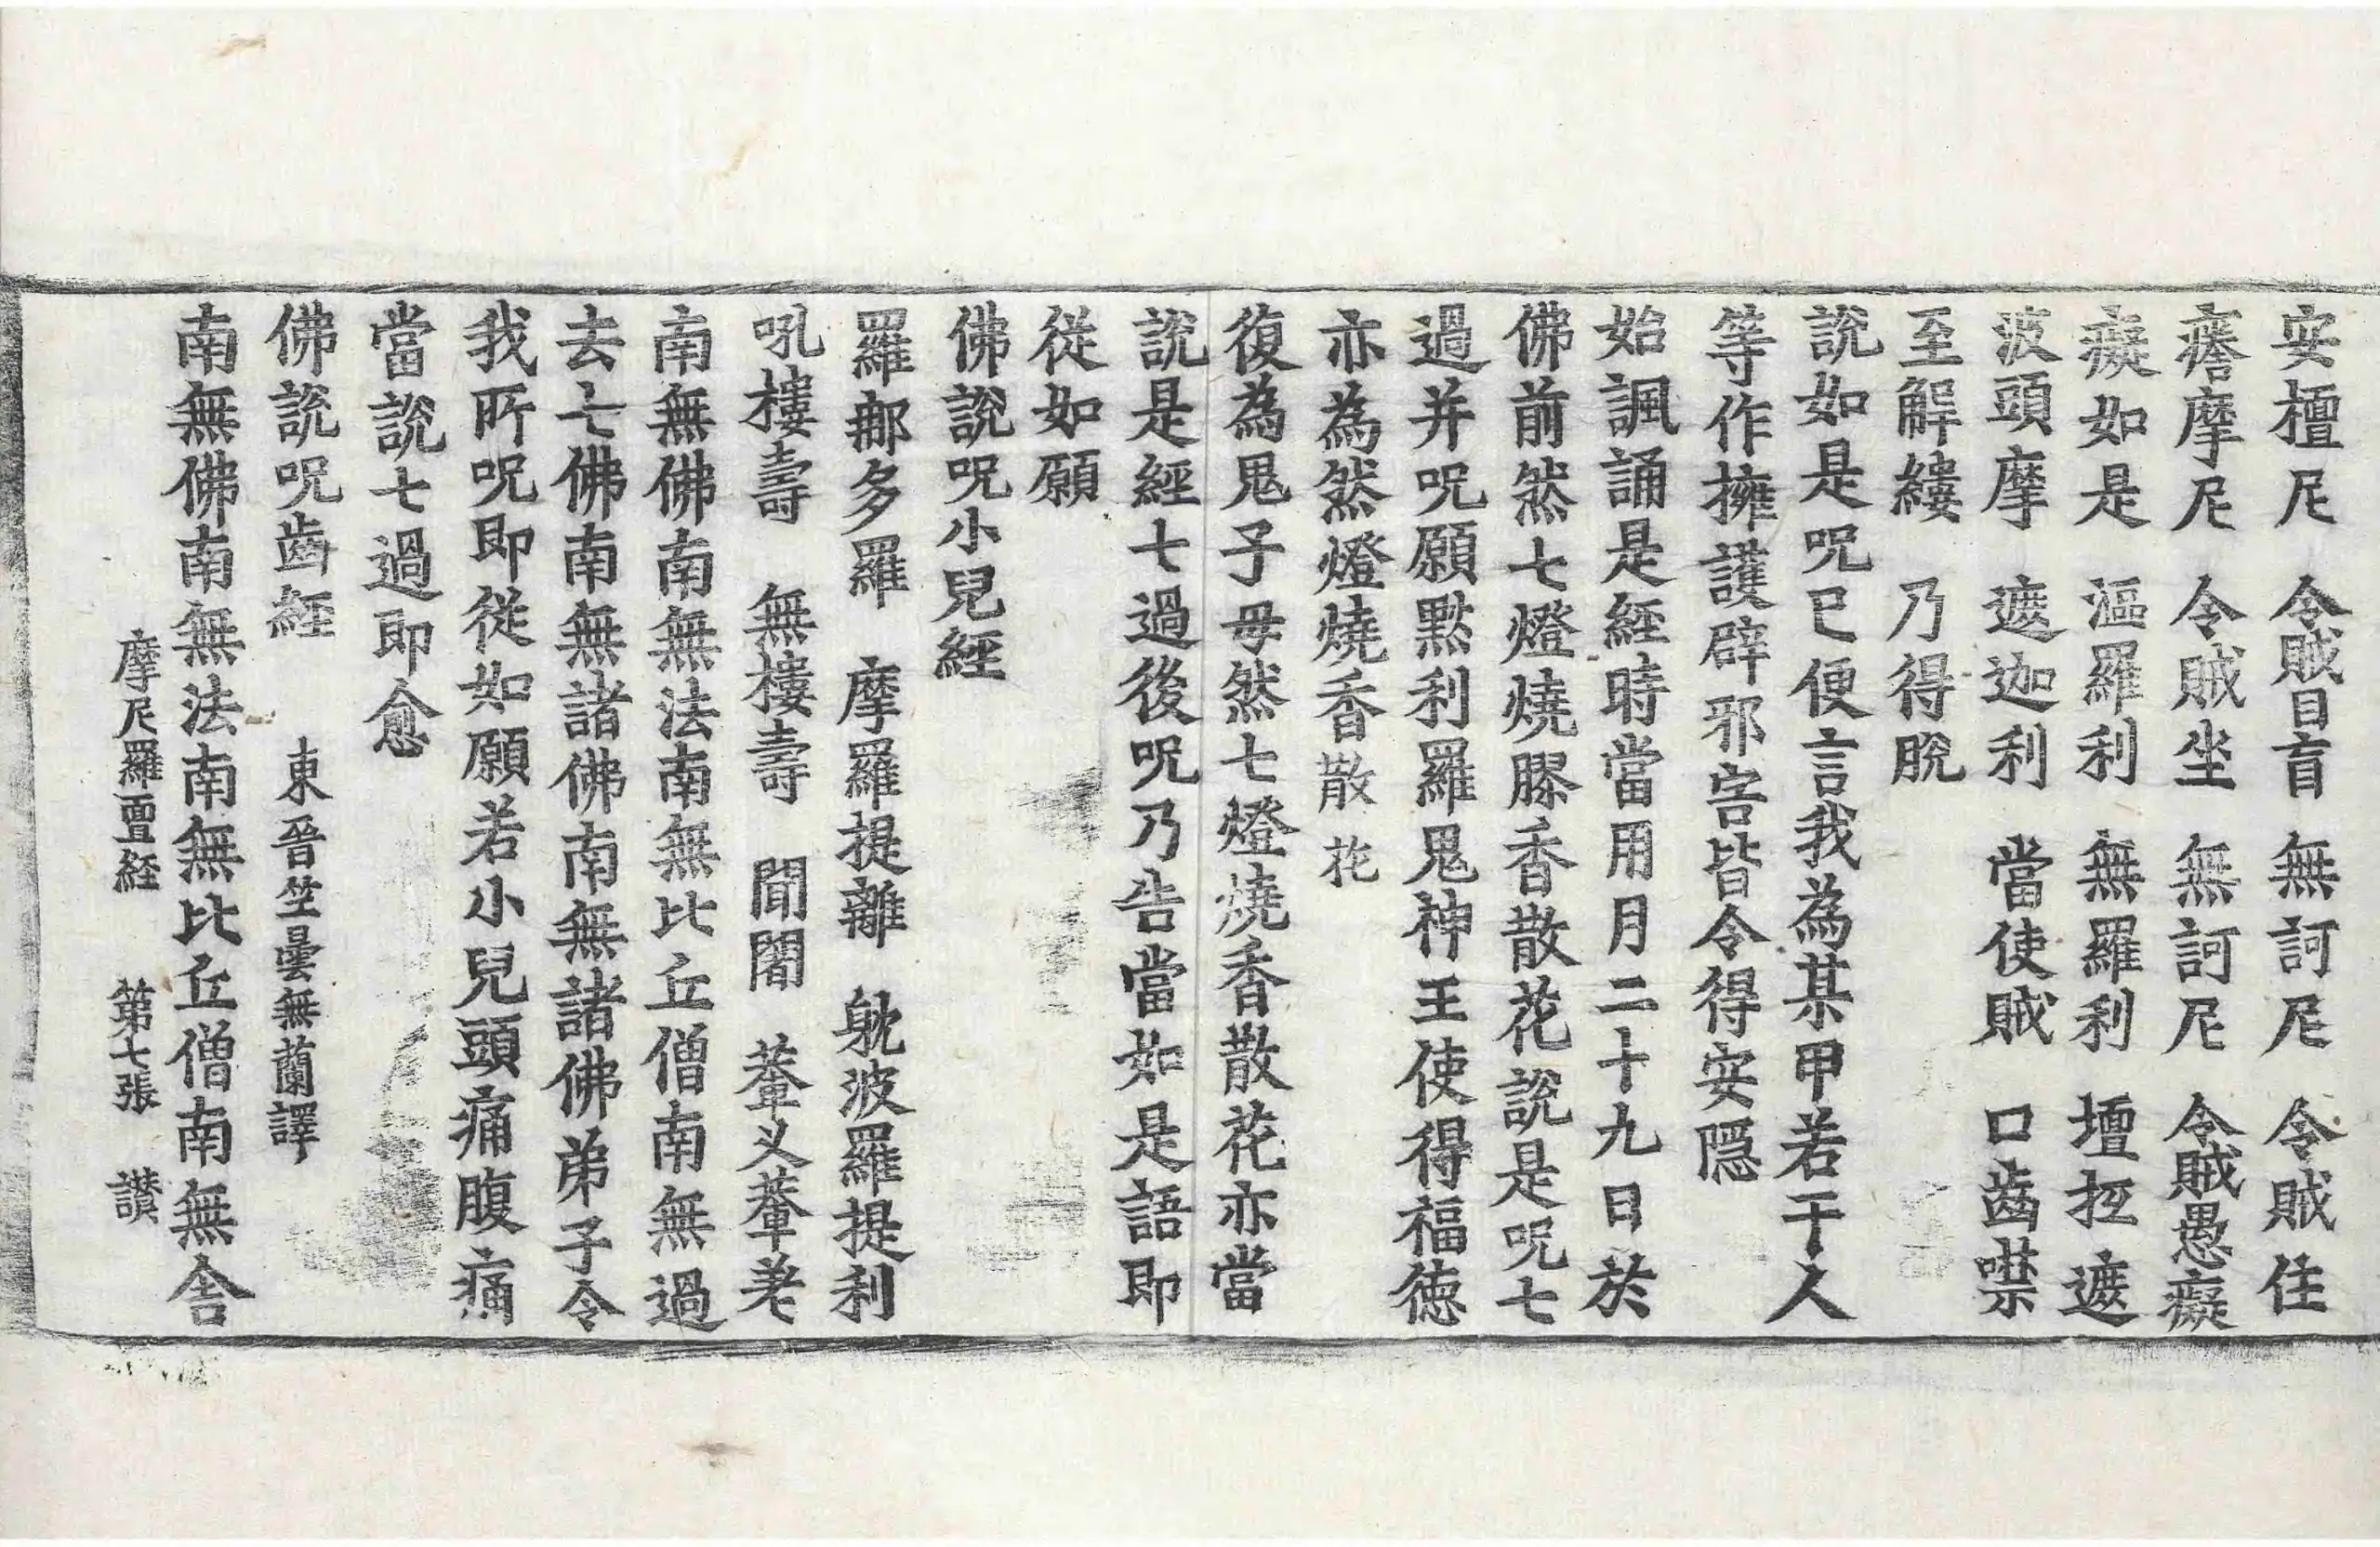 安檀尼　令賊目盲　無訶尼　令賊住
瘩摩尼　令賊坐　無訶尼　令賊愚癡
癡如是　漚羅利　無羅利　壇抂遮
波頭摩　遮迦利　當使賊　口齒噤
至解縷　乃得脫
說如是呪已便言我為某甲若干人
等作擁護辟邪害皆令得安隱
始諷誦是經時當用月二十九日於
佛前然七燈燒膠香散花說是呪七
過并呪願黙利羅鬼神王使得福德
亦為然燈燒香散花
復為鬼子母然七燈燒香散花亦當
說是經七過後呪乃告當如是語即
從如願
佛說呪小兒經
羅鄁多羅　摩羅提離　躭波羅提利
吼樓壽　無樓壽　閒闍　䔖乂䔖耄
南無佛南無法南無比丘僧南無過
去七佛南無諸佛南無諸佛弟子令
我所呪即從如願若小兒頭痛腹痛
當說七過即愈
佛說呪齒經　東晉竺曇無蘭譯
南無佛南無法南無比丘僧南無舍
摩尼羅亶経　第七張　讃